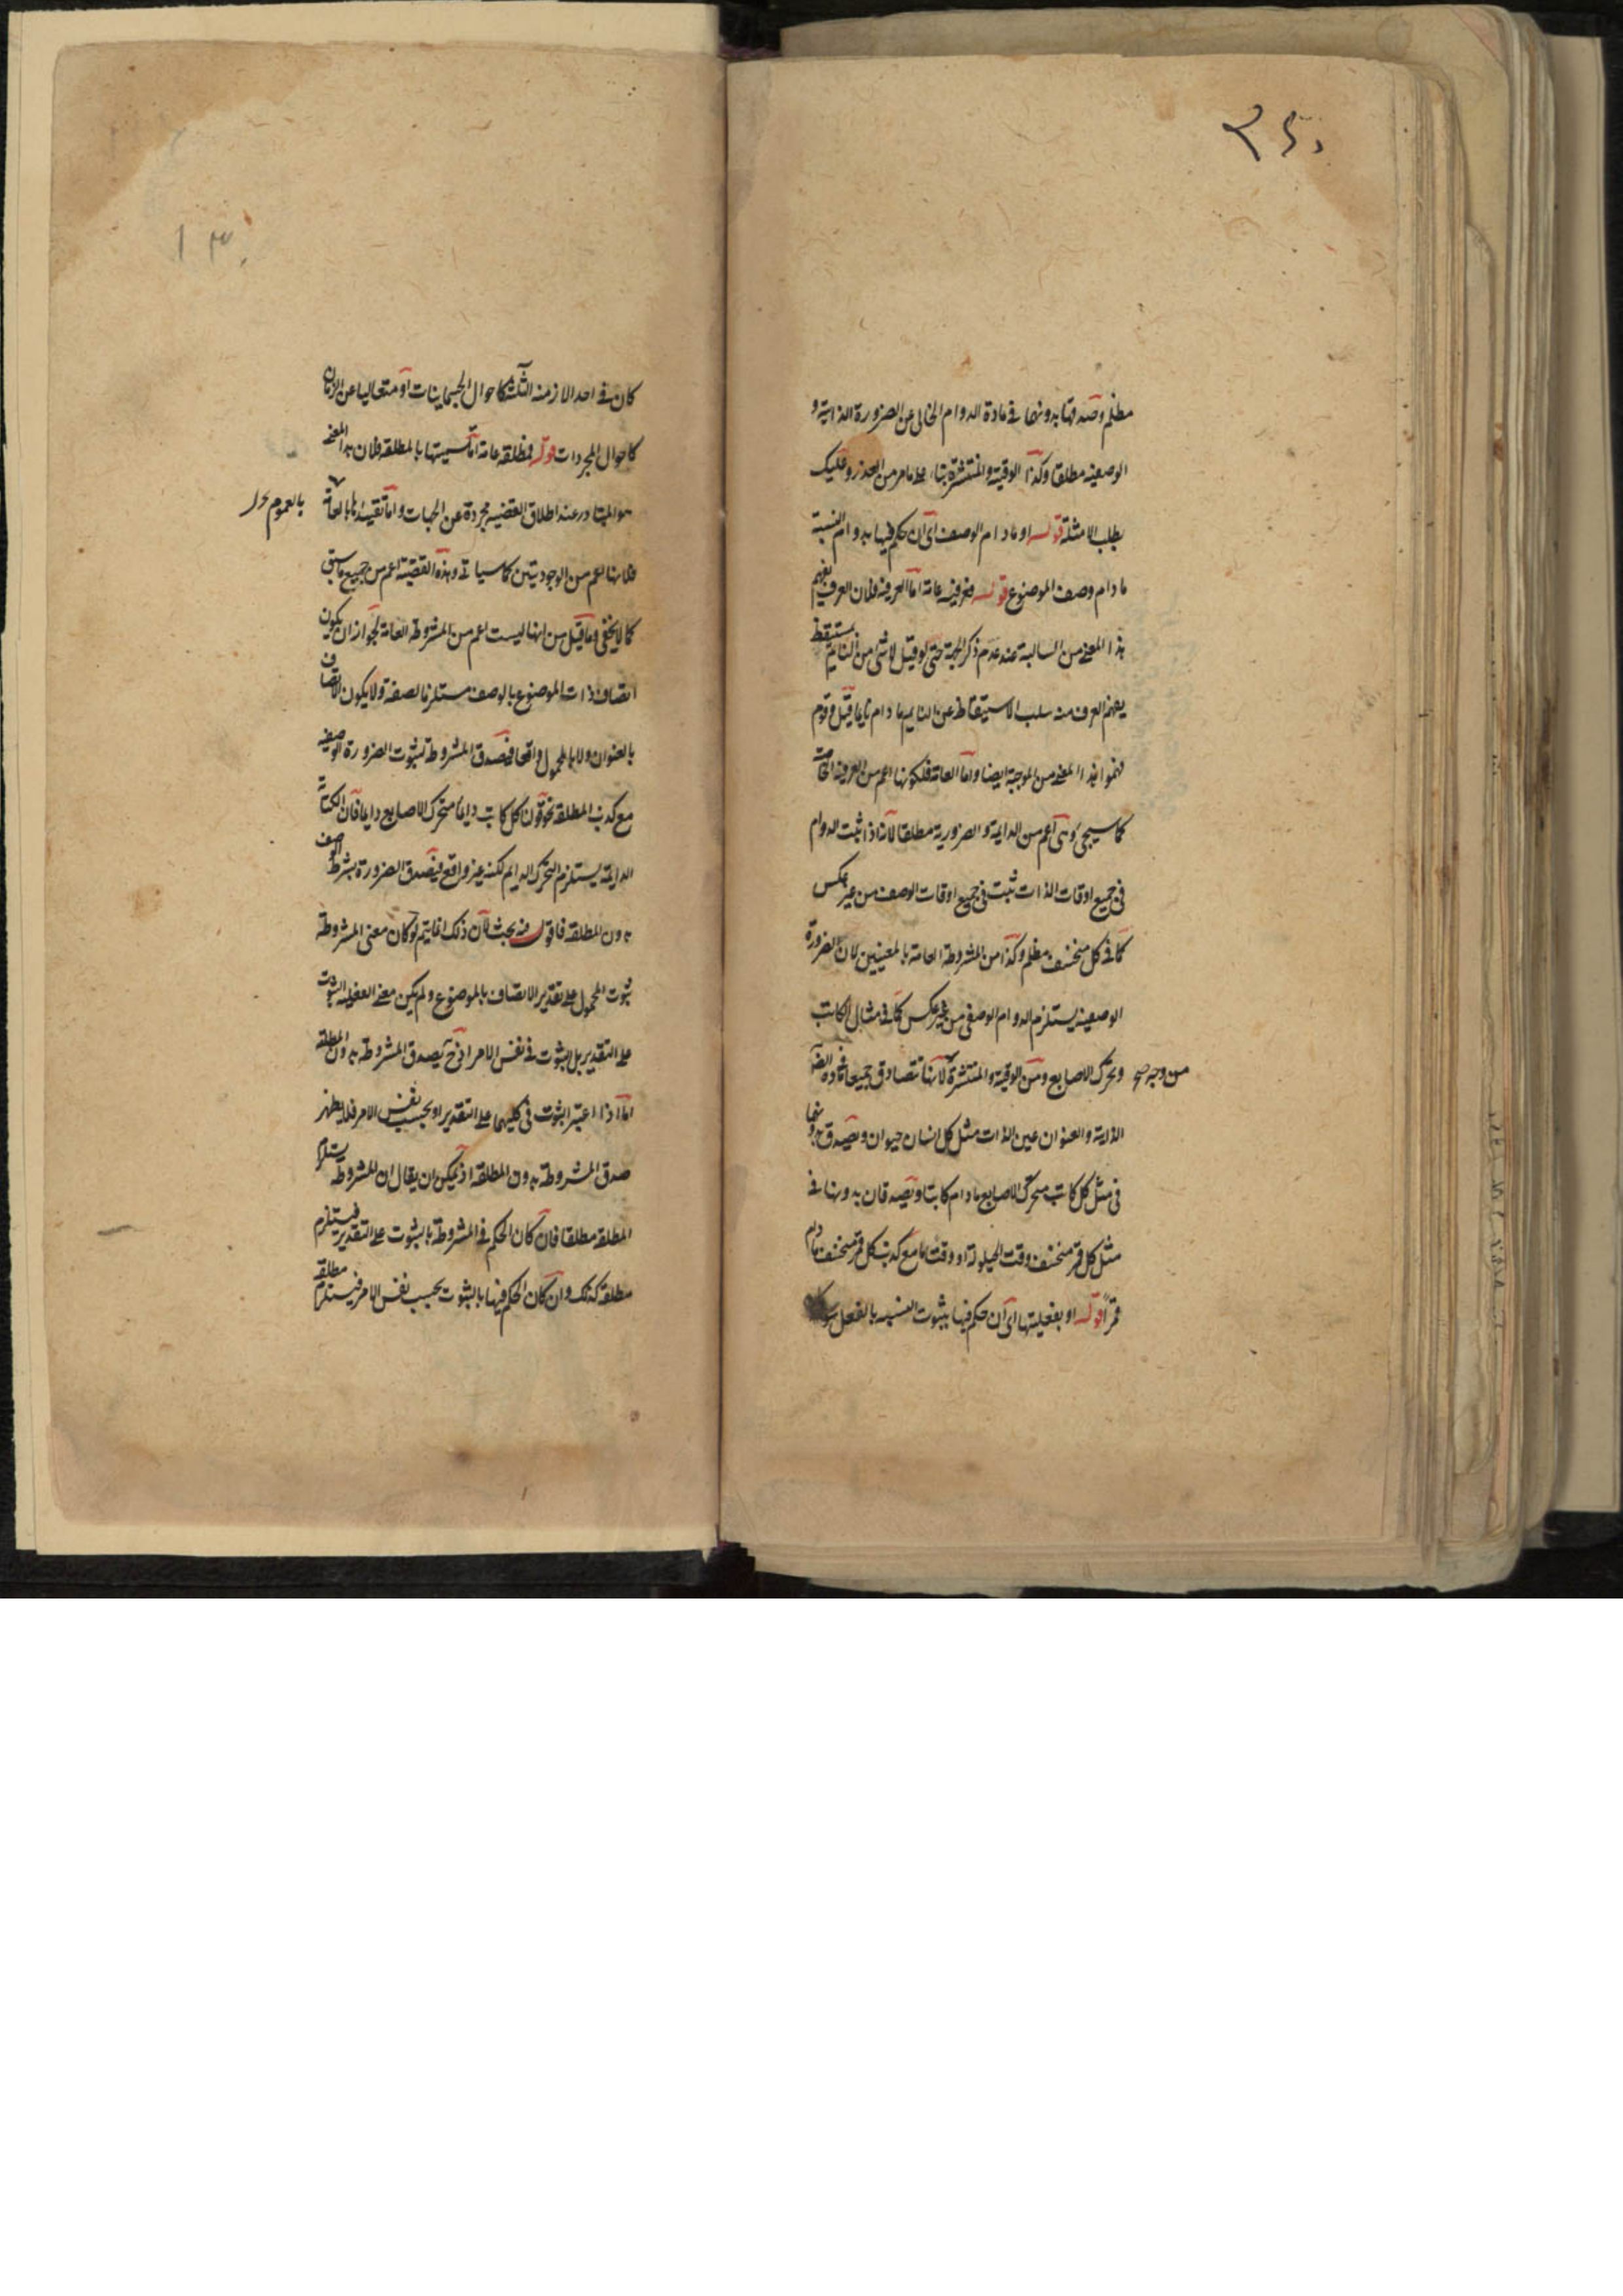 مظلم وصدقها بدونها في مادة الدوام الخالي عن الضرورة الذاتية و
الوصفية مطلقا وكذا الوقتية والمنتشرة بناء على ما مر من الحذر وعليك
بطلب الامثلة قوله او مادام الوصف اى ان حكم فيها بدوام النسبة
مادام وصف الموضوع قوله فعرفية عامة اما العرفية فلان العرف يفهم
هذا المعنى من السالبة عند عدم ذكر الجهة حتى لو قيل لا شئ من النايم بمستيقظ
يفهم العرف منه سلب الاستيقاظ عن النايم مادام نايما قيل وقوم
فهموا هذا المعنى من الموجبة ايضا واما العامة فلكونها اعم من العرفية الخاصة
كما سيجى وهى اعم من الدايمة والضرورية مطلقا لانه اذا ثبت الدوام
فى جميع اوقات الذات ثبت فى جميع اوقات الوصف من غير عكس
كما فى كل منخسف مظلم وكذا من المشروطة العامة بالمعنيين لان الضرورة
الوصفية يستلزم الدوام الوصفى من غير عكس كما فى مثال الكاتب
وتحرك الاصابع ومن الوقتية والمنتشرة لانها تتصادق جميعا فى مادة الضرورة
من وجه صح
الذاتية والعنوان عين الذات مثل كل انسان حيوان وتصدق بدونهما
فى مثل كل كاتب متحرك الاصابع مادام كاتبا وتصدقان بدونها فى
مثل كل قمر منخسف وقت الحيلولة او وقت ما مع كذب كل قمر منخسف مادام
قمرا قوله او بفعليتها اى ان حكم فيها بثبوت النسبة بالفعل سواء
كان فى احد الازمنة الثلثة كاحوال الجسمانيات او متعاليا عن الزمان
كاحوال المجردات قوله فمطلقة عامة اما تسميتها بالمطلقة فلان هذا المعنى
هو المتبادر عند اطلاق القضية مجردة عن الجهات واما تقييدها بالعامة
بالعموم
فلانها اعم من الوجوديتين كما سياتى وهذه القضية اعم من جميع ما سبق
كما لا يخفى وما قيل من انها ليست اعم من المشروطة العامة لجواز ان يكون
اتصاف ذات الموضوع بالوصف مستلزما لصفة ولا يكون الاتصاف
بالعنوان ولا بالمحمول واقعا فتصدق المشروطة لثبوت الضرورة الوصفية
مع كذب المطلقة نحو قولنا كل كاتب دايما متحرك الاصابع دايما فان الكتابة
الدايمة يستلزم التحرك الدايم لكنه غير واقع فيصدق الضرورة بشرط الوصف
بدون المطلقة فاقول فيه بحث لان ذلك انما يتم لو كان معنى المشروطة
ثبوت المحمول على تقدير الاتصاف بالموضوع ولم يكن معنى الفعلية الثبوت
على التقدير بل الثبوت فى نفس الامر اذ ح يصدق المشروطة بدون المطلقة
اما اذا اعتبر الثبوت فى كليهما على التقدير او بحسب نفس الامر فلا يظهر
صدق المشروطة بدون المطلقة اذ يمكن ان يقال ان المشروطة يستلزم
المطلقة مطلقا فان كان الحكم فى المشروطة بالثبوت على التقدير فيستلزم
مطلقة كذلك وان كان الحكم فيها بالثبوت بحسب نفس الامر فيستلزم مطلقة